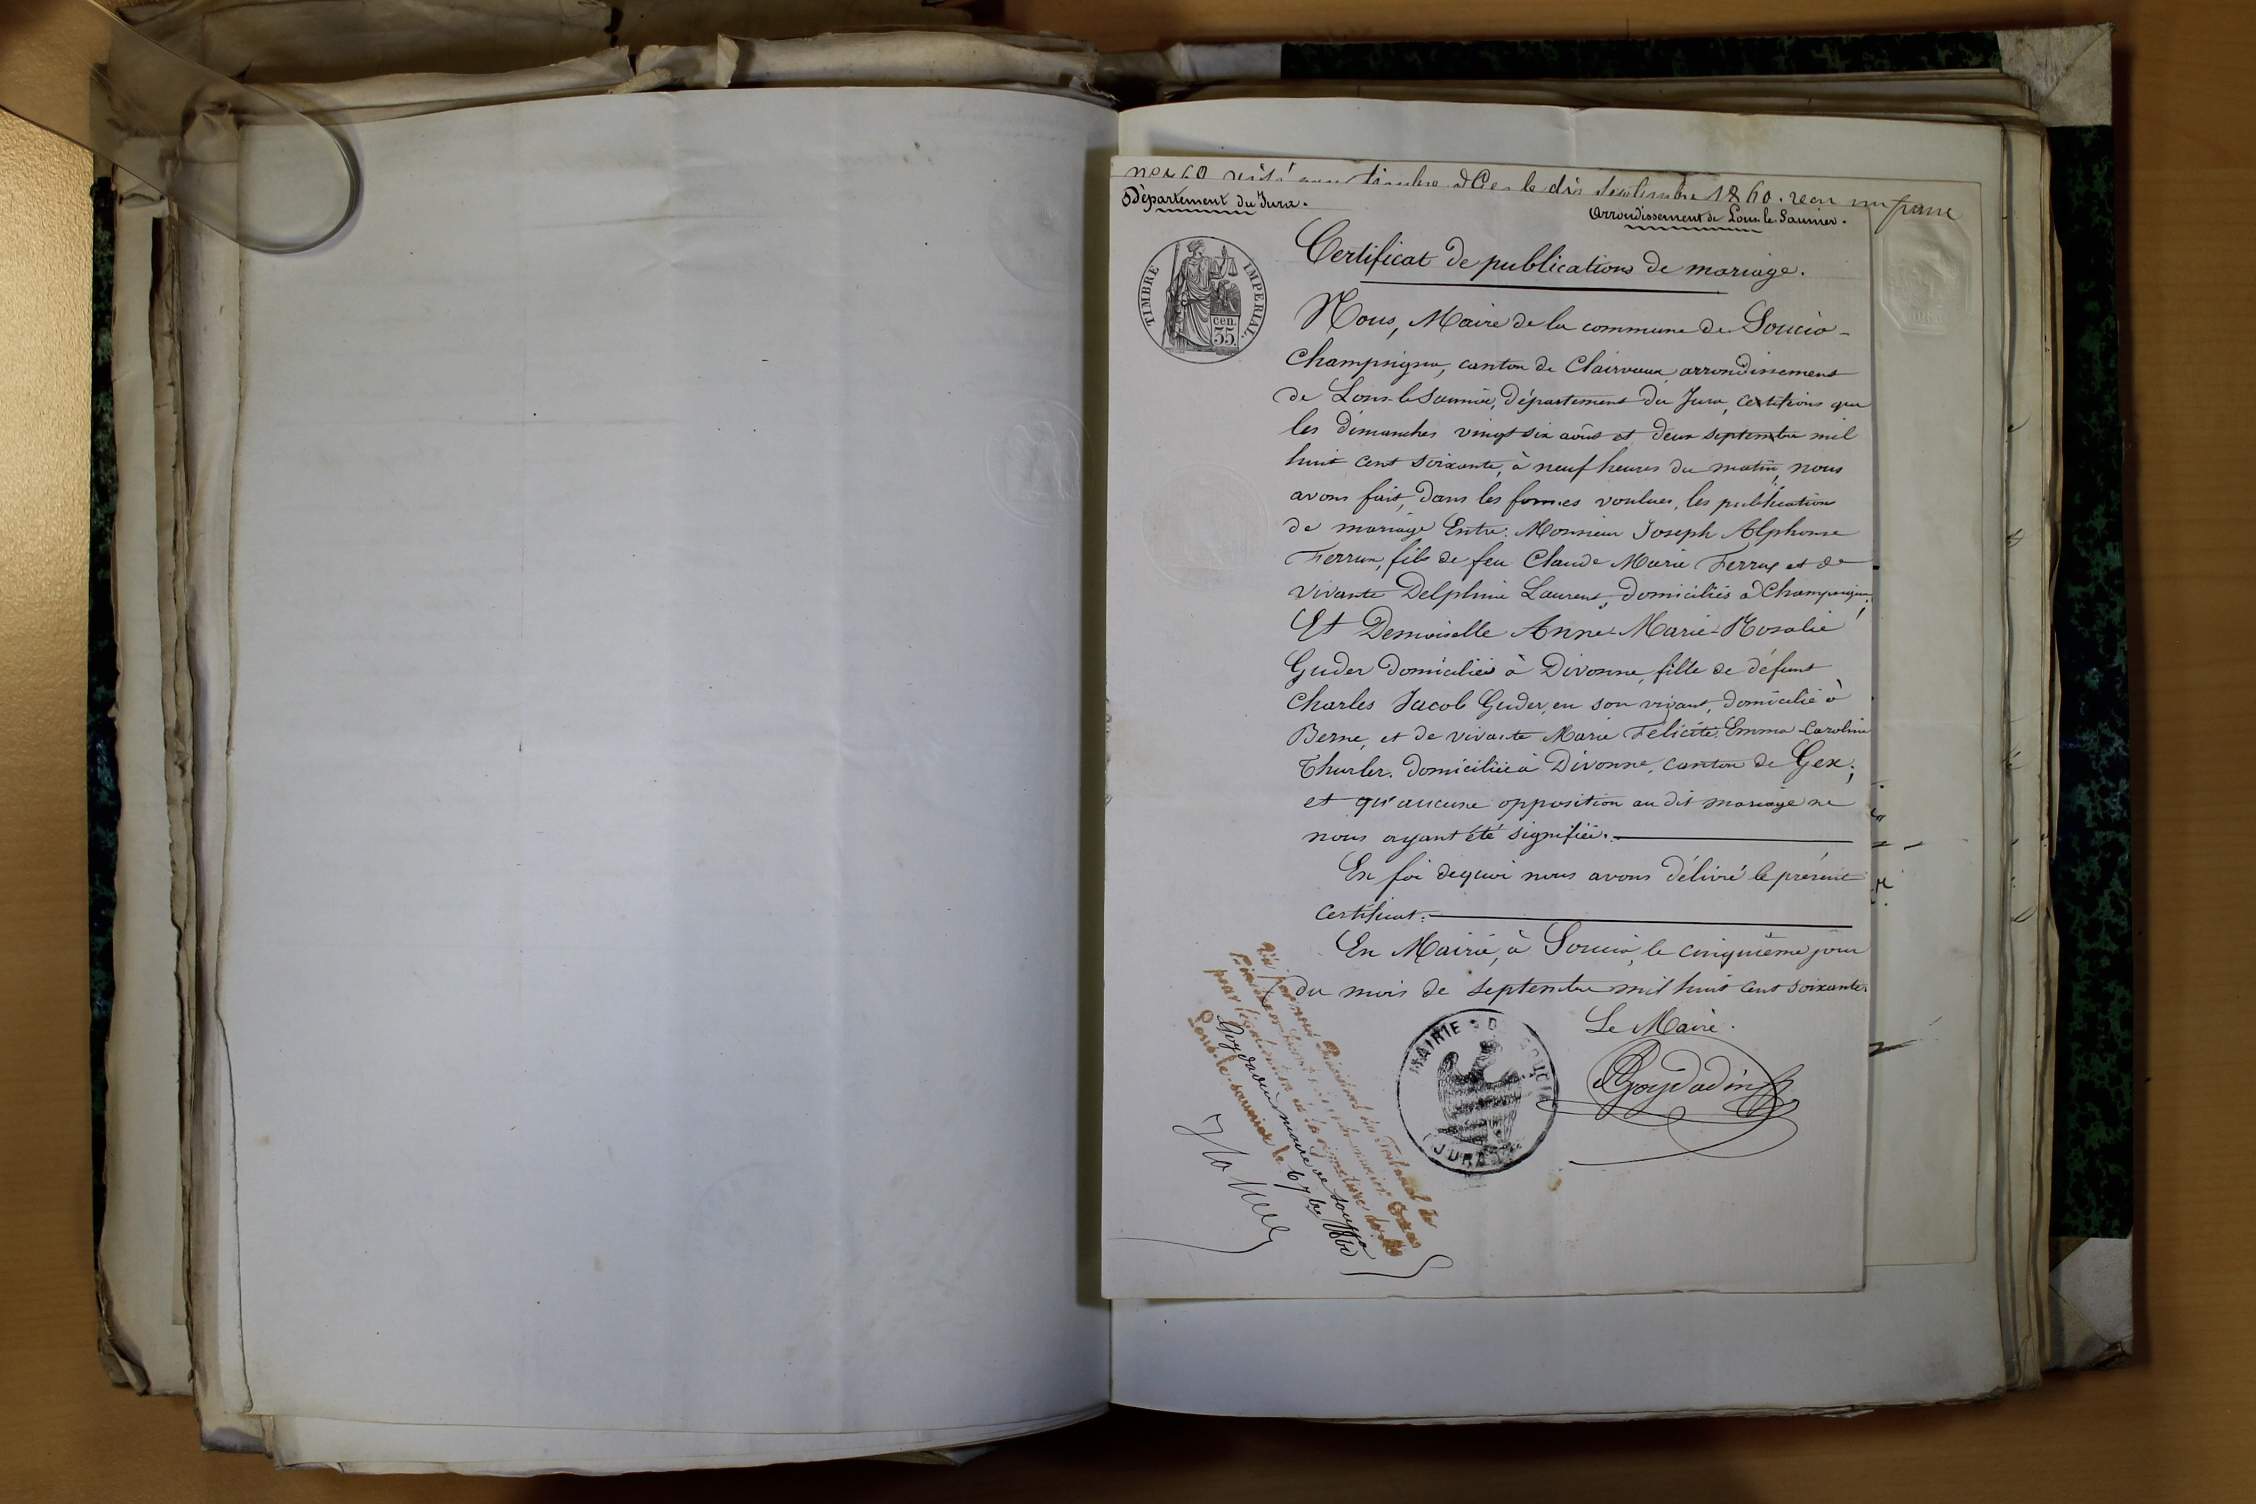 visé pour timbre à Gex le dix septembre 1860. reçu un franc
Département du Jura.
Arrondissement de Lons-le-Saunier.
TIMBRE IMPERIAL.
cen.
35.
Certificat de publications de mariage.
Nous, Maire de la commune de Soucia-
Champsigna, canton de Clairvaux, arrondissement
de Lons-le Saunier, département du Jura, certifions que
les dimanches vingt six août et deux septembre mil
huit cent soixante, à neuf heures du matin, nous
avons fait, dans les formes voulues, les publication
de mariage Entre: Monsieur Joseph Alphonse
Ferrux, fils de feu Claude Marie Ferrux et de
vivante Delphine Laurent, domiciliés à Champsigna;
Et Demoiselle Anne-Marie-Rosalie
Guder domiciliée à Divonne, fille de défunt
Charles Jacob Guder, en son vivant, domicilié à
Berne, et de vivante Marie Felicité Emma-Caroline
Thurler. domiciliée à Divonne, canton de Gex;
et qu'aucune opposition au dit mariage ne
nous ayant été signifiée.
En foi de quoi nous avons délivré le présent
certificat.
En Mairie, à Soucia, le cinquième jour
du mois de septembre mil huit cent soixante.
Le Maire.
Goydadin
MAIRIE DE SOUCIA
JURA
Vu par nous Président du Tribunal de
Première
pour légalisation de la signature de M.
Goydadin maire de Soucia
Lons-le-Saunier le 6 7bre 1860